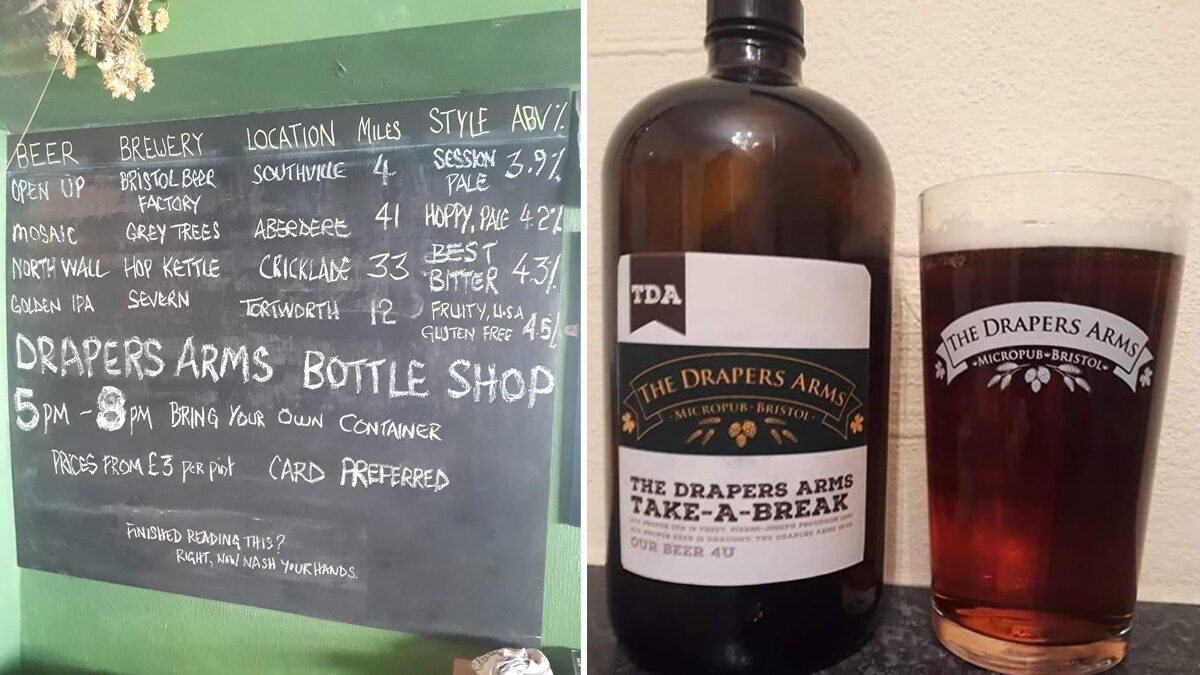 BEER BREWERY LOCATION MILES STYLE ABV%
OPEN UP BRISTOL BEER FACTORY SOUTHVILLE 4 SESSION PALE 3.9%
MOSAIC GREY TREES ABERDERE 41 HOPPY, PALE 4.2%
NORTH WALL HOP KETTLE CRICKLADE 33 BEST BITTER 4.3%
GOLDEN IPA SEVERN TORTWORTH 12 FRUITY, U.S.A GLUTEN FREE 4.5%
DRAPERS ARMS BOTTLE SHOP
5PM - 8PM BRING YOUR OWN CONTAINER
PRICES FROM £3 per pint CARD PREFERRED
FINISHED READING THIS?
RIGHT, NOW WASH YOUR HANDS.
TDA
THE DRAPERS ARMS
MICROPUB · BRISTOL
THE DRAPERS ARMS
TAKE-A-BREAK
ALL PROPER TEA IS THEFT. PIERRE-JOSEPH PROUDHON
ALL PROPER BEER IS DRAUGHT. THE DRAPERS ARMS
OUR BEER 4U
THE DRAPERS ARMS
MICROPUB BRISTOL